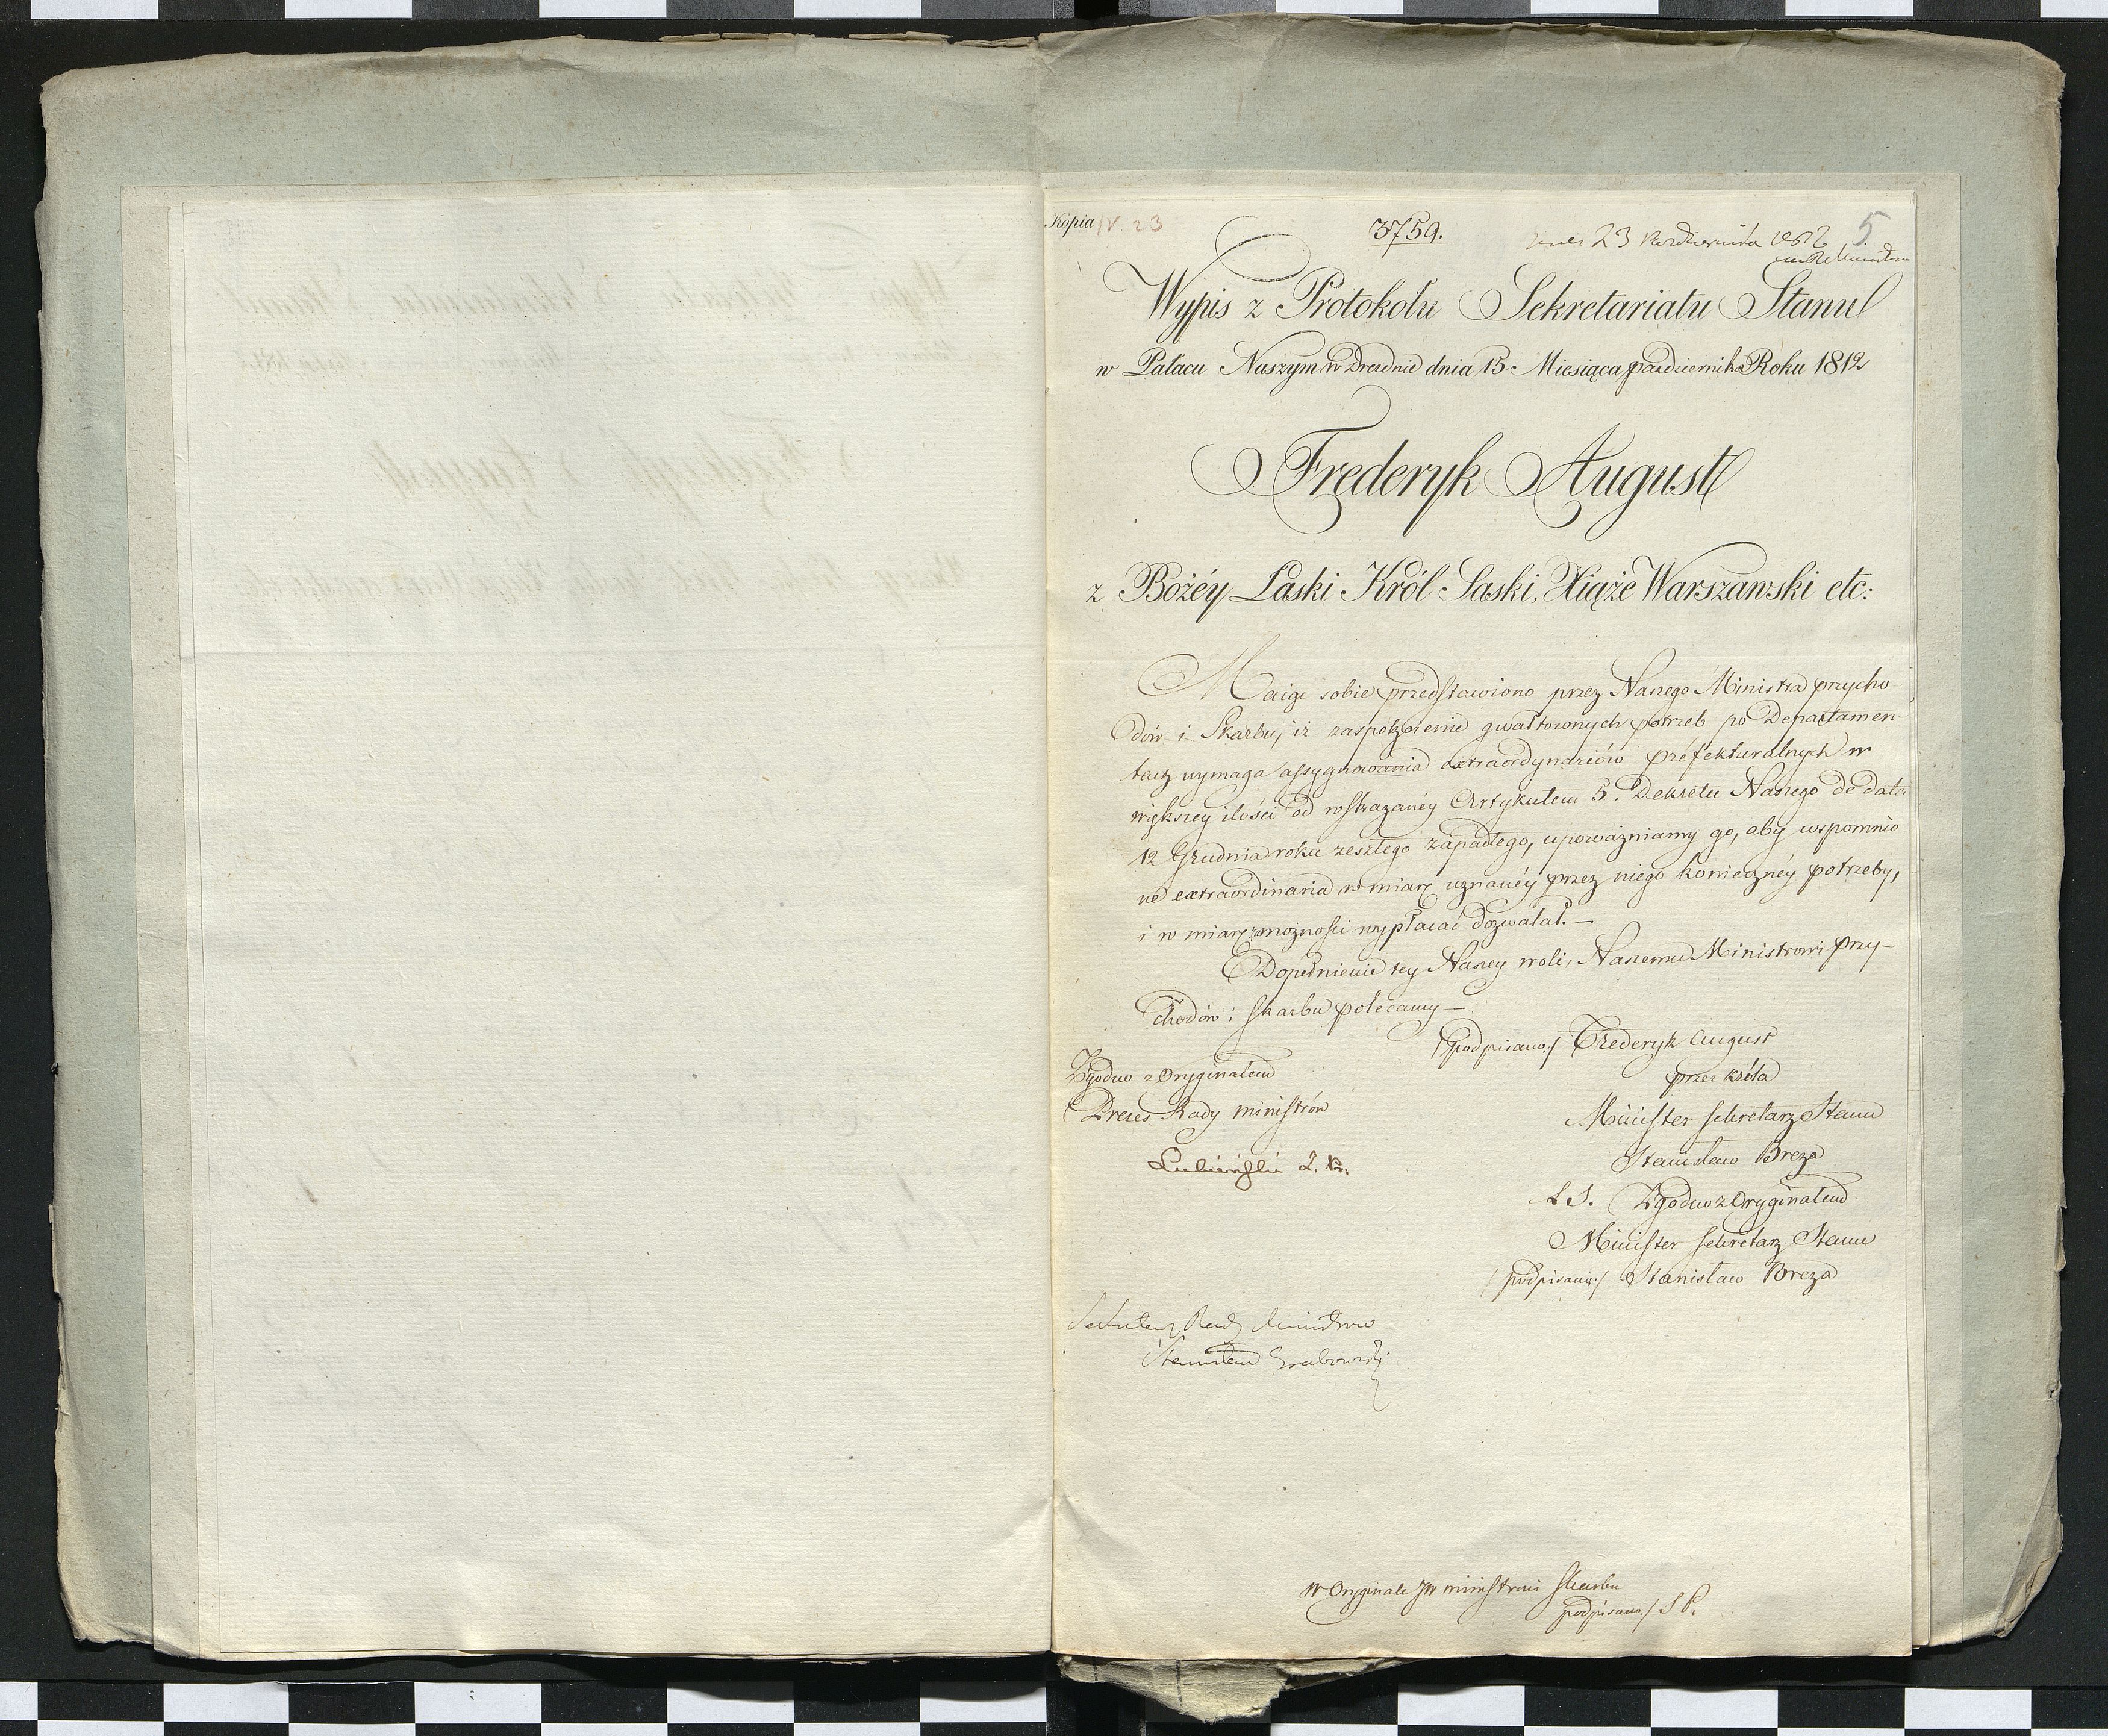 Kopia
3759.
23 Października 1812
5
Wypis z Protokołu Sekretariatu Stanu
w Pałacu Naszym w Dreznie dnia 15 Miesiąca października Roku 1812
Frederyk August
z Bożéy Łaski Król Saski, Xiąże Warszawski etc:
Maiąc sobie przedstawiono przez Naszego Ministra przycho
dów i Skarbu, iż zaspokoienie gwałtownych potrzeb po Departamen-
tach wymaga assygnowania extraordynariów prefekturalnych w
większey ilości od wskazanéy Artykułem 5. Dekretu Naszego de dato
12 Grudnia roku zeszłego zapadłego, upoważniamy go, aby wspomnio
ne extraordinaria w miarę uznanéy przez niego konieczney potrzeby,
i w miarę możności wypłacać dozwalał. —
Dopełnienie tey Naszey woli, Naszemu Ministrowi przy-
chodów i skarbu polecamy —
/podpisano:/ Frederyk August
przez króla
Minister Sekretarz Stanu
Stanisław Breza
L S. Zgodno z Oryginałem
Minister Sekretarz Stanu
/podpisano:/ Stanisław Breza
Zgodno z Oryginałem
Prezes Rady Ministrów
Sekretarz Rady Ministrów
Stanisław Grabowski
w Oryginale JW ministrowi Skarbu
podpisano:/ S P.